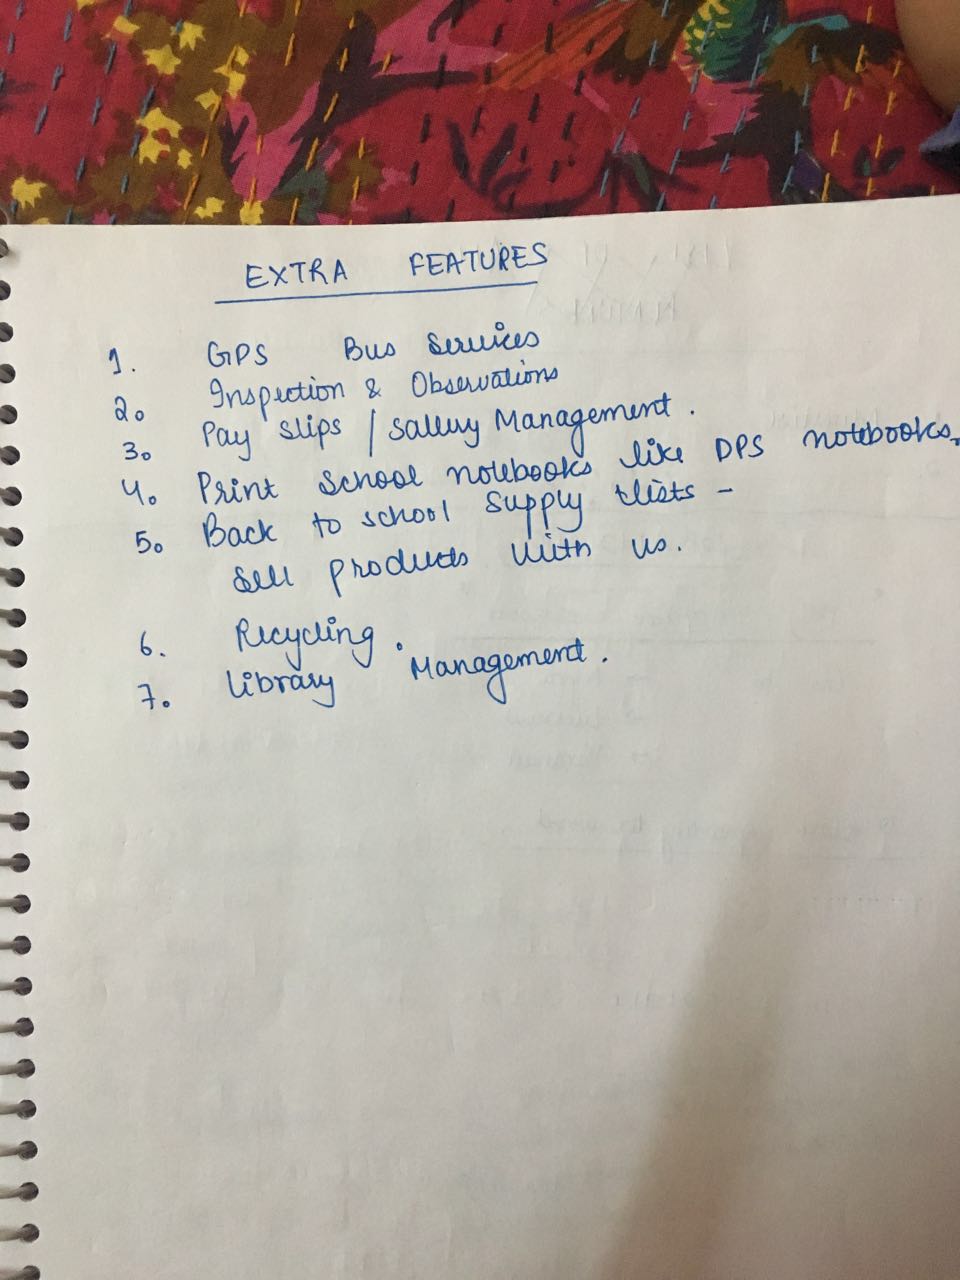 EXTRA FEATURES
1. GPS Bus Services
2. Inspection & Observations
3. Pay slips / Sallery Management.
4. Print School notebooks like DPS notebooks.
5. Back to school supply lists -
Sell products with us.
6. Recycling.
7. Library Management.